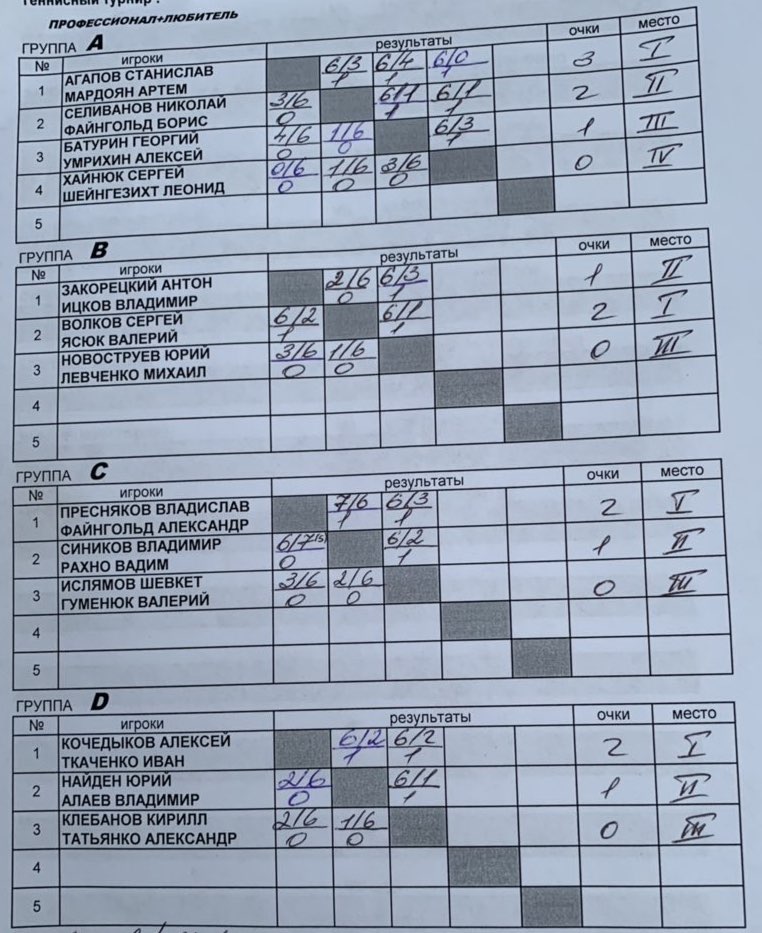 теннисный турнир :
ПРОФЕССИОНАЛ+ЛЮБИТЕЛЬ
ГРУППА A
№ игроки результаты очки место
1 АГАПОВ СТАНИСЛАВ 6/3 6/4 6/0 3 I
МАРДОЯН АРТЕМ 1 1 1
2 СЕЛИВАНОВ НИКОЛАЙ 3/6 6/1 6/1 2 II
ФАЙНГОЛЬД БОРИС 0 1 1
3 БАТУРИН ГЕОРГИЙ 4/6 1/6 6/3 1 III
УМРИХИН АЛЕКСЕЙ 0 0 1
4 ХАЙНЮК СЕРГЕЙ 0/6 1/6 3/6 0 IV
ШЕЙНГЕЗИХТ ЛЕОНИД 0 0 0
5
ГРУППА B
№ игроки результаты очки место
1 ЗАКОРЕЦКИЙ АНТОН 2/6 6/3 1 II
ИЦКОВ ВЛАДИМИР 0 1
2 ВОЛКОВ СЕРГЕЙ 6/2 6/1 2 I
ЯСЮК ВАЛЕРИЙ 1 1
3 НОВОСТРУЕВ ЮРИЙ 3/6 1/6 0 III
ЛЕВЧЕНКО МИХАИЛ 0 0
4
5
ГРУППА C
№ игроки результаты очки место
1 ПРЕСНЯКОВ ВЛАДИСЛАВ 7/6 6/3 2 I
ФАЙНГОЛЬД АЛЕКСАНДР 1 1
2 СИНИКОВ ВЛАДИМИР 6/7(5) 6/2 1 II
РАХНО ВАДИМ 0 1
3 ИСЛЯМОВ ШЕВКЕТ 3/6 2/6 0 III
ГУМЕНЮК ВАЛЕРИЙ 0 0
4
5
ГРУППА D
№ игроки результаты очки место
1 КОЧЕДЫКОВ АЛЕКСЕЙ 6/2 6/2 2 I
ТКАЧЕНКО ИВАН 1 1
2 НАЙДЕН ЮРИЙ 2/6 6/1 1 II
АЛАЕВ ВЛАДИМИР 0 1
3 КЛЕБАНОВ КИРИЛЛ 2/6 1/6 0 III
ТАТЬЯНКО АЛЕКСАНДР 0 0
4
5